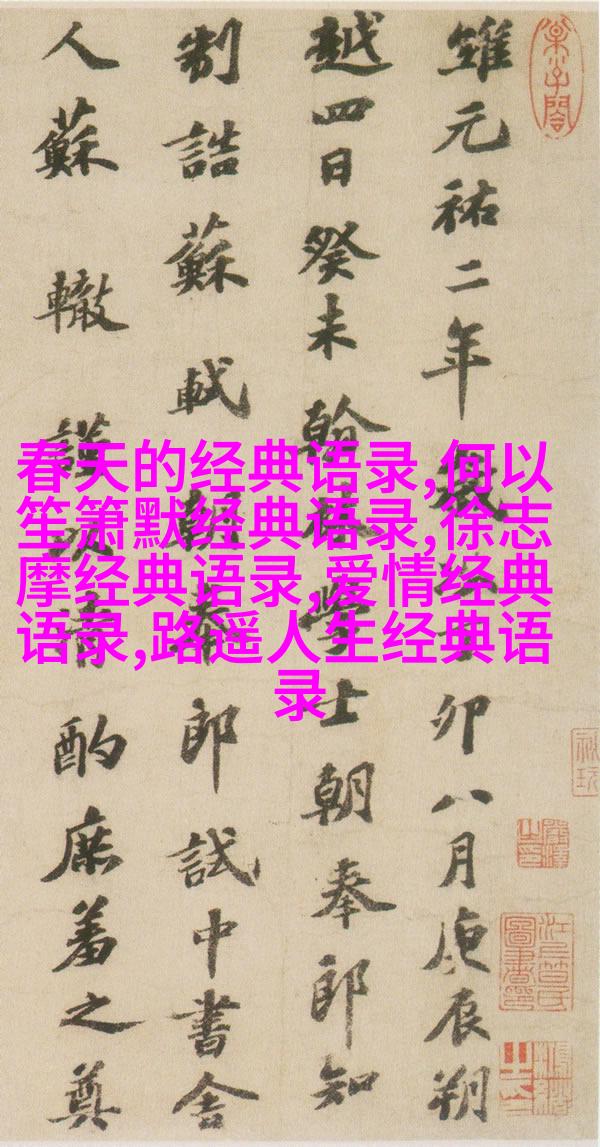 春天的经典语录,何以
笙箫默经典语录,徐志
摩经典语录,爱情经典
语录,路遥人生经典语
录
維元祐二年歲次丁卯八月庚辰朔
越四日癸未翰林學士朝奉郎知
制誥蘇軾朝奉郎試中書舍
人蘇轍謹以清酌庶羞之奠